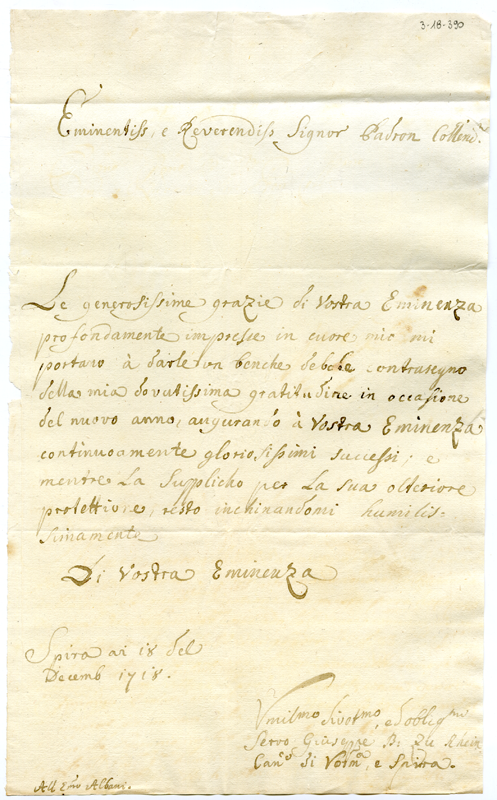 3-18-390
Eminentiss, e Reverendiss Signor Padron Collend.
Le generosissime grazie di Vostra Eminenza
profondamente impresse in cuore mio mi
portano à darle un benche debole contrasegno
della mia dovutissima gratitudine in occasione
del nuovo anno, augurando à Vostra Eminenza
continuamente gloriosissimi successi; e
mentre La Supplicho per La sua olteriore
protettione, resto inchinandomi humilis=
simamente
Di Vostra Eminenza
Spira ai 18 del
Decemb 1718.
Umilmo divotmo, ed obligmo
Servo Giuseppe B: Zu Rhein
Canco di Vormo, e Spira.
All Emo Albani.